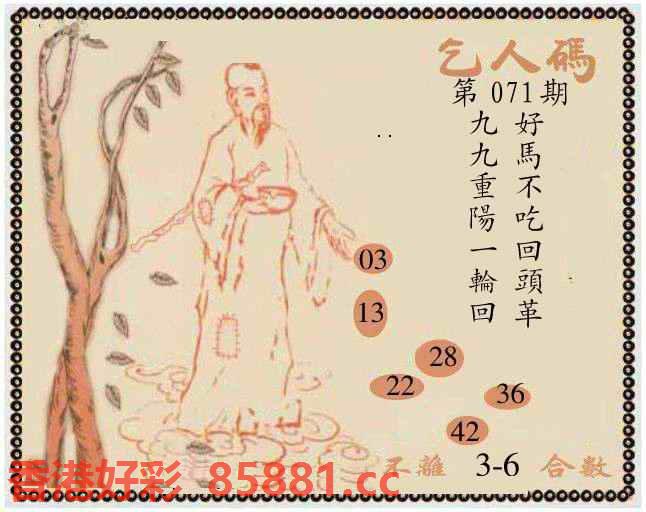 乞人碼
第071期
好馬不吃回頭革
九九重陽一輪回
03
13
28
22
36
42
不離 3-6 合數
香港好彩 85881.cc